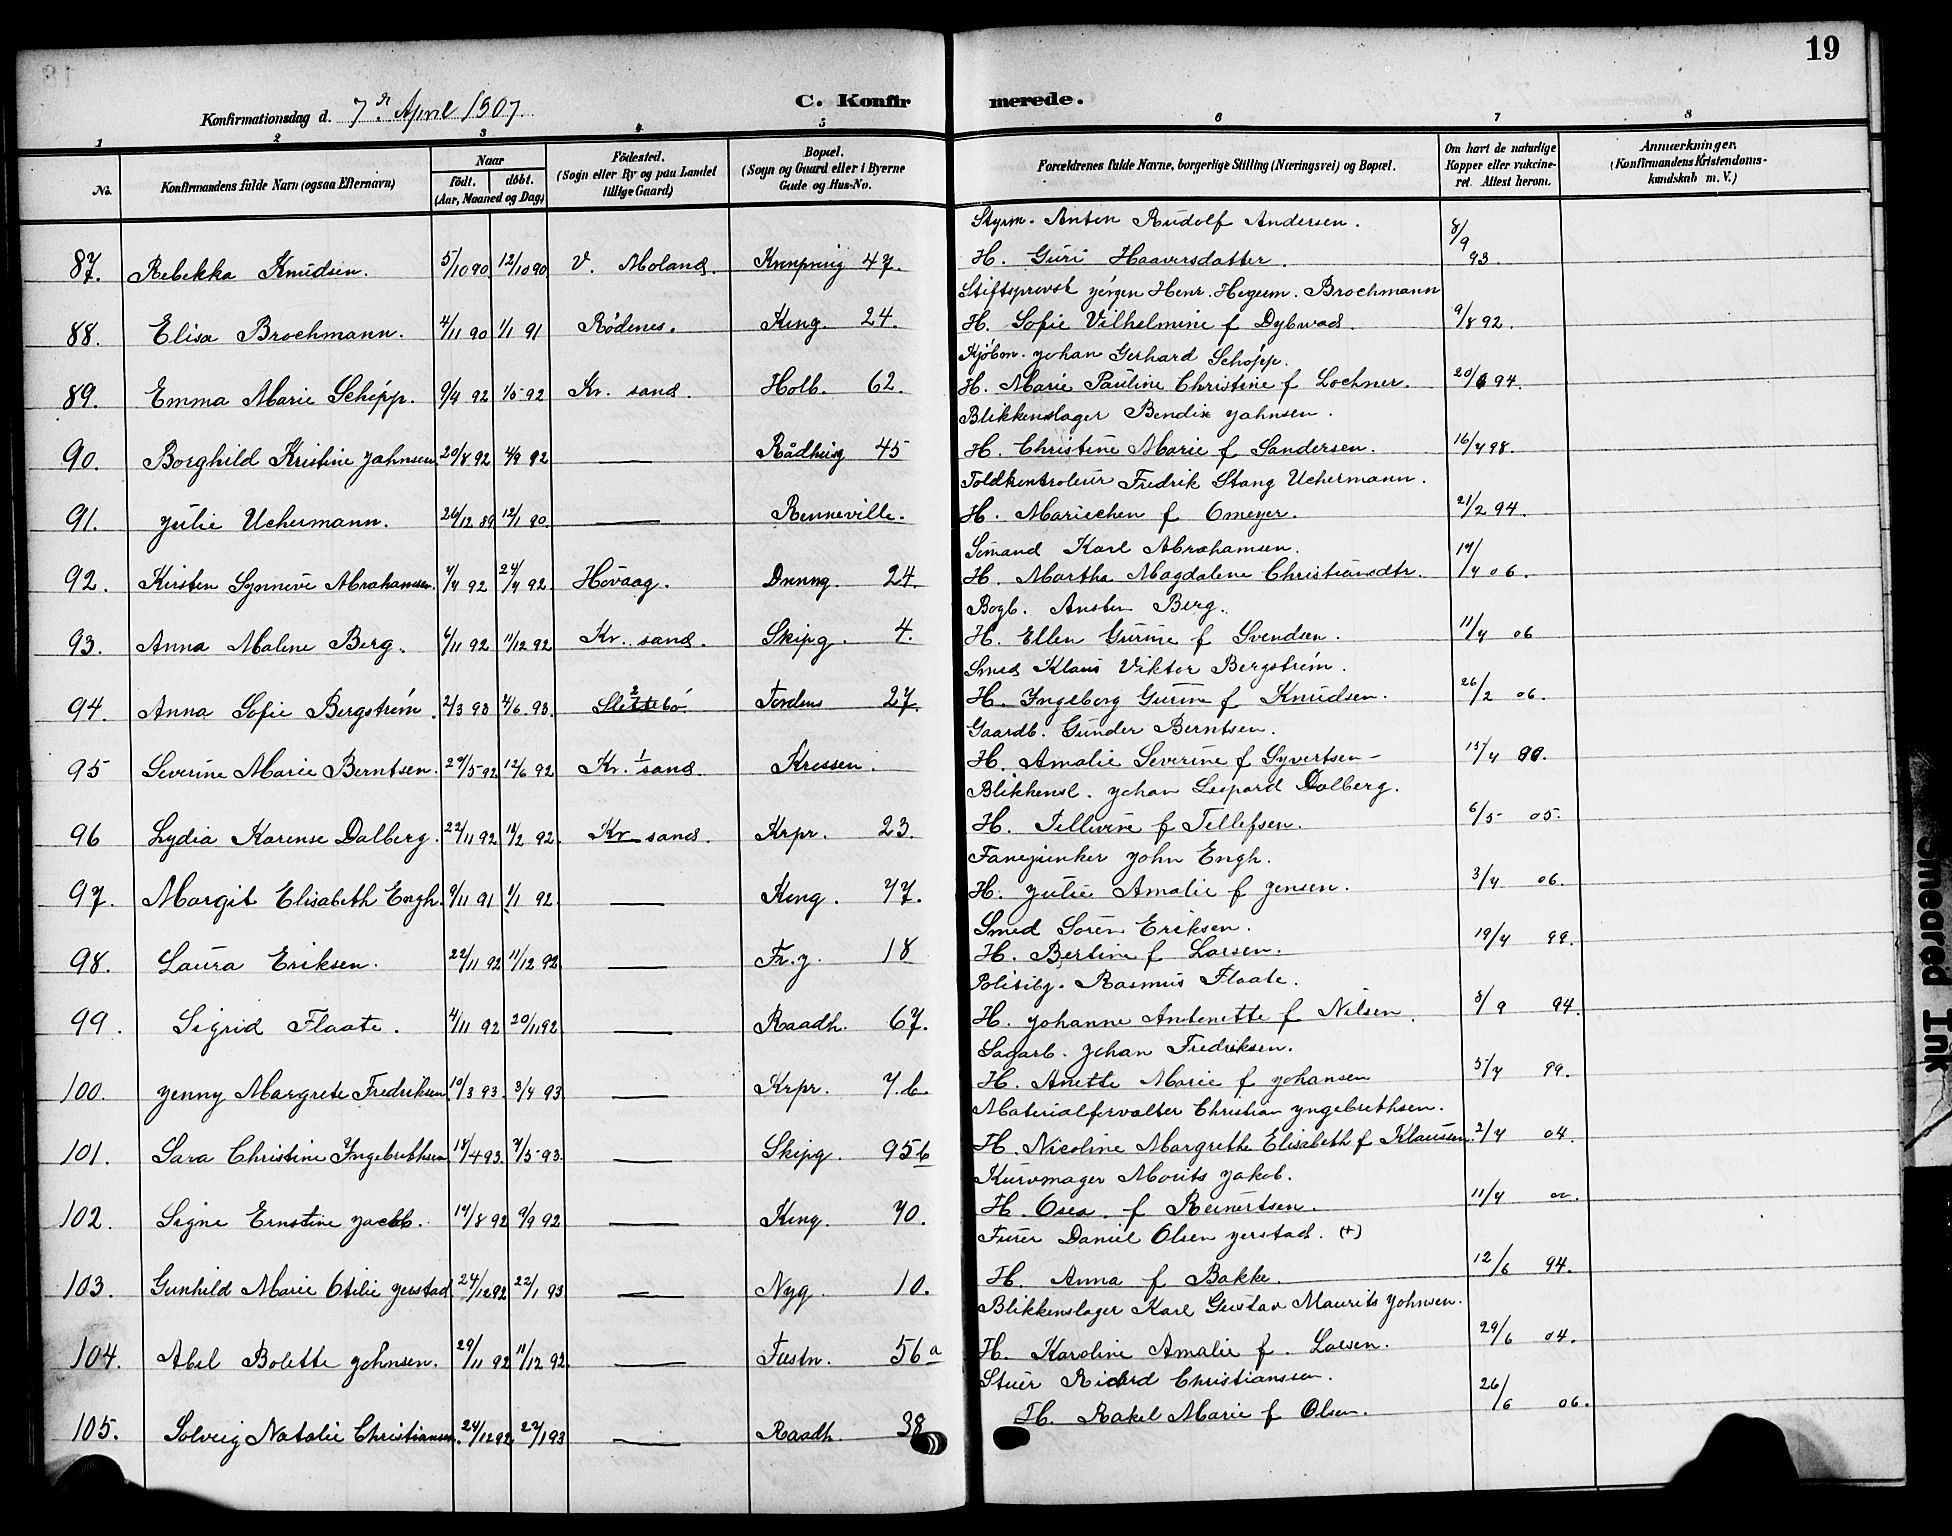 19
Konfirmationsdag d. 7de April 1907.
C. Konfirmerede.
1 2 3 4 5 6 7 8
No. Konfirmandens fulde Navn (ogsaa Efternavn) Naar Født. døbt. (Aar, Maaned og Dag) Fødested. (Sogn eller By og paa Landet tillige Gaard) Bopæl. (Sogn og Gaard eller i Byerne Gade og Hus-No. Forældrenes fulde Navne, borgerlige Stilling (Næringsvei) og Bopæl. Om havt de naturlige Kopper eller vakcineret. Attest herom. Anmærkninger. (Konfirmandens Kristendomskundskab m. V.)
Styrm. Anton Rudolf Andersen.
87. Rebekka Knudsen. 5/10 90 12/10 90 V. Moland. 47. H. Guri Haaversdatter. 8/9 93.
Stiftsprovst Jörgen Henr. Brochmann
88. Elisa Brochmann. 4/11 90 1/1 91 Rödenes. Kong. 24. H. Sofie Vilhelmine f Dybwad. 9/8 92.
Kjöbm. Johan Gerhard Schöpp.
89. Emma Marie Schöpp. 9/4 92 1/5 92 Kr. sand. Holb. 62. H. Marie Pauline Christine f Lochner. 20/6 94.
Blikkenslager Bendix Jahnsen.
90. Borghild Kristine Jahnsen 20/8 92 4/9 92 — Rådhusg 45 H. Christine Marie f Sandersen. 16/4 98.
Toldkontroleur Fredrik Stang Uchermann.
91. Julie Uchermann. 26/12 89 12/1 90. — Renneville. H. Mariechen f Omeyer. 21/2 94.
Sömand Karl Abrahamsen.
92. Kirsten Synneve Abrahamsen. 4/4 92 24/4 92. Hövaag. Dronng 24. H. Martha Magdalene Christiansdtr. 17/4 06.
Bogb. Ansten Berg.
93. Anna Malene Berg. 6/11 92 11/12 92 Kr. sand. Skipg. 4. H. Ellen Gurine f Svendsen. 11/4 06
Smed Klaus Viktor Bergström.
94. Anna Sofie Bergström. 2/3 93 4/6 93. Slettebö. Tordens 27. H. Yngeborg Gurine f Knudsen. 26/2 06.
Gaardb. Gunder Berntsen.
95 Severine Marie Berntsen. 29/5 92 12/6 92 Kr. sand. Kressen. H. Amalie Severine f Syvertsen - 15/4
Blikkensl. Johan Leopard Dalberg.
96 Lydia Karense Dalberg. 22/11 92 92. Kr sand. Krpr. 23. H. Tellevine f Tellefsen. 6/5 05.
Fanejunker John Engh.
97. Margit Elisabeth Engh. 9/11 91 1/1 92. — Kong. 77. H. Julie Amalie f Jensen. 3/4 06.
Smed Sören Eriksen.
98. Laura Eriksen. 22/11 92 11/12 92. — Fr.g. 18 H. Bertine f Larsen. 19/4 99.
Politibg. Rasmus Flaate.
99. Sigrid Flaate. 4/11 92 20/11 92 — Raadh. 67. H. Johanne Antonette f Nilsen. 8/9 94.
Sagarb. Johan Fredriksen.
100. Jenny Margrete Fredriksen 10/3 93. 3/4 93. — Krpr. 7.b. H. Anette Marie f Johansen 5/4 99.
Materialforvalter Christian Yngebrethsen.
101. Sara Christine Yngebrethsen 18/4 93. 7/5 93. — Skipg. 95b H. Nicoline Margrethe Elisabeth f Klausen. 2/4 04.
Kurvmager Morits Jakob.
102. Signe Ernstine Jacob. 14/8 92 9/9 92 — Kong. 70. H. Osea. f Reinertsen. 11/4 02.
Furer Daniel Olsen Jerstad. (+)
103. Gunhild Marie Otilie Jerstad 24/12 92 22/1 93 — Nyg. 10. H. Anna f Bakke. 12/6 94.
Blikkenslager Karl Gustav Maurits Johnsen.
104. Abel Bolette Johnsen. 29/11 92 11/12 92. — Fæstn. 56a H. Karoline Amalie f. Larsen. 29/6 04.
Stuer Rickard Christianssen.
105. Solveig Natalie Christiansen. 24/12 92 22/1 93 — Raadh. 38 H. Rakel Marie f Olsen. 26/6 06.
Smeared Ink